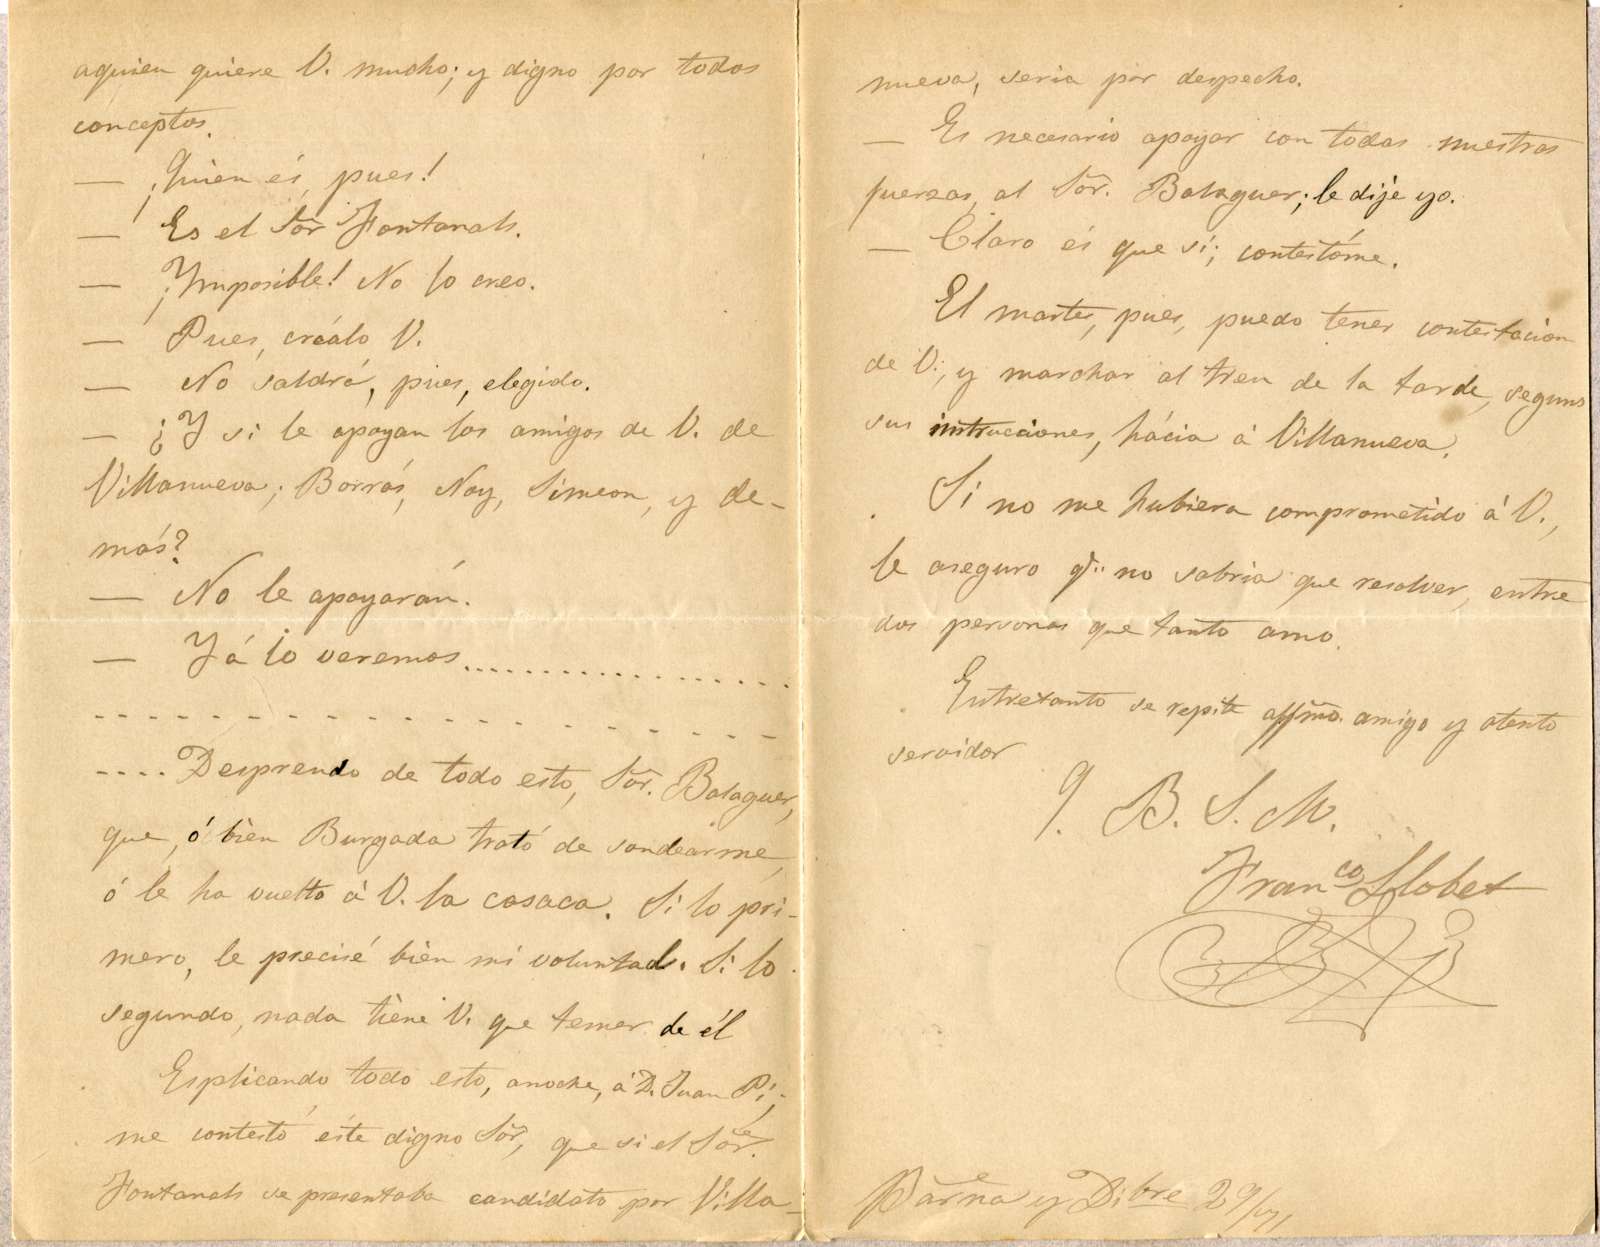 aquien quiere V. mucho; y digno por todos
conceptos.
— ¡Quien és, pues!
— Es el Sõr Fontanals.
— ¡Ymposible! No lo creo.
— Pues, créalo V.
— No saldrá, pues, elegido.
— ¿Y si le apoyan los amigos de V. de
Villanueva; Borrás, Noy, Simeon, y de-
más?
— No le apoyarán.
— Yá lo veremos..................
- - - - - - - - - - - - - - - - - -
....Desprendo de todo esto, Sõr. Balaguer,
que, ó bien Burgada trató de sondearme,
ó le ha vuelto á V. la casaca. Si lo pri-
mero, le precisé bien mi voluntad. Si lo
segundo, nada tiene V. que temer de él
Esplicando todo esto, anoche, á D. Juan Pi;
me contestó éste digno Sõr, que si el Sõr.
Fontanals se presentaba candidato por Villa-
nueva, seria por despecho.
— Es necesario apoyar con todas nuestras
fuerzas, al Sõr. Balaguer; le dije yo.
— Claro és que sí; contestóme.
El martes, pues, puedo tener contestacion
de V., y marchar al tren de la tarde, seguns
sus instrucciones, hácia á Villanueva.
Si no me hubiera comprometido á V.,
le aseguro q.. no sabria que resolver, entre
dos personas que tanto amo.
Entretanto se repite affmo. amigo y atento
servidor
q. B. S. M.
Franco Llobet
Barna y Dibre 29/71